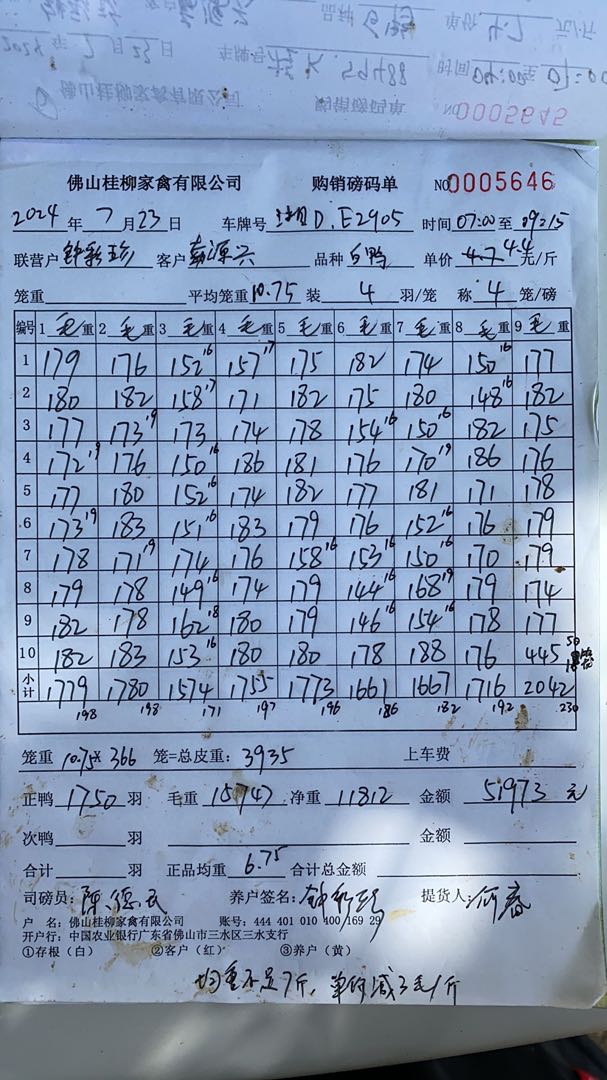 佛山桂柳家禽有限公司 购销磅码单 NO 0005646
2024 年 7 月 23 日 车牌号 D.E2905 时间 07:00 至 09:15
联营户 客户 品种 白鸭 单价 4.7 4.4 元/斤
笼重 平均笼重 10.75 装 4 羽/笼 称 4 笼/磅
编号 1 毛重 2 毛重 3 毛重 4 毛重 5 毛重 6 毛重 7 毛重 8 毛重 9 毛重
1 179 176 152 16 157 17 175 182 174 150 16 177
2 180 182 158 17 171 182 175 180 148 16 182
3 177 173 19 173 174 178 154 16 150 16 182 175
4 172 19 176 150 16 186 181 176 170 19 186 176
5 177 180 152 16 174 182 177 181 171 178
6 173 19 183 151 16 183 179 176 152 16 176 179
7 178 171 19 174 176 158 16 153 16 150 16 170 179
8 179 178 149 16 174 179 144 16 168 19 179 174
9 182 178 162 18 180 179 146 16 154 16 178 177
10 182 183 153 16 180 180 178 188 176 445 50
小计 1779 1780 1574 1755 1773 1661 1667 1716 2042
198 198 171 197 196 186 182 192 230
笼重 10.75× 366 笼=总皮重: 3935 上车费
正鸭 1750 羽 毛重 15747 净重 11812 金额 51973 元
次鸭 羽 金额
合计 羽 正品均重 6.75 合计总金额
司磅员: 陈德民 养户签名: 提货人:
户 名: 佛山桂柳家禽有限公司 账号: 444 401 010 400 169 29
开户行: 中国农业银行广东省佛山市三水区三水支行
①存根（白） ②客户（红） ③养户（黄）
均重不足7斤，单价减3毛/斤